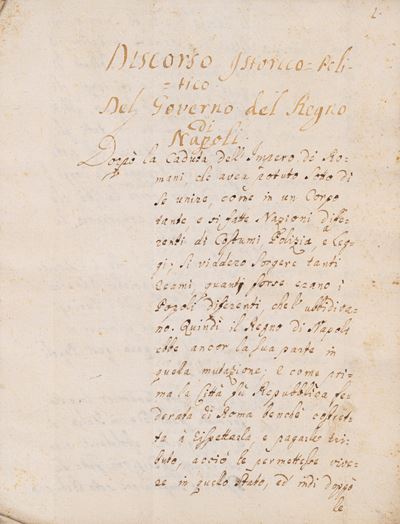 1.
Discorso Istorico=Poli-
=tico
Del Governo del Regno
di
Napoli.
Doppò la Caduta dell'Impero di Ro-
mani che avea potuto sotto di
se unire, come in un Corpo
tante, e si fatte Nazioni diffe-
renti di Costumi, Polizia, e Leg-
gi; si viddero sorgere tanti
reami quanti forse erano i
Popoli diferenti che l'ubbidiva-
no. Quindi il Regno di Napoli
ebbe ancor la sua parte in
quella mutazione; e come pri-
ma la Città fù Repubblica fe-
derata di Roma benche costret-
ta à rispettarla, e pagarne tri-
buto, acciò le permettesse vive-
re in quello stato, ed indi doppò
le